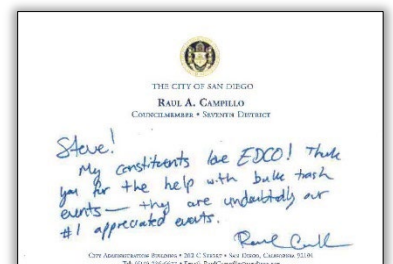 THE CITY OF SAN DIEGO
RAUL A. CAMPILLO
COUNCILMEMBER • SEVENTH DISTRICT
Steve!
My constituents love EDCO! Thank
you for the help with bulk trash
events — they are undoubtedly our
#1 appreciated events.
CITY ADMINISTRATION BUILDING • 202 C STREET • SAN DIEGO, CALIFORNIA 92101